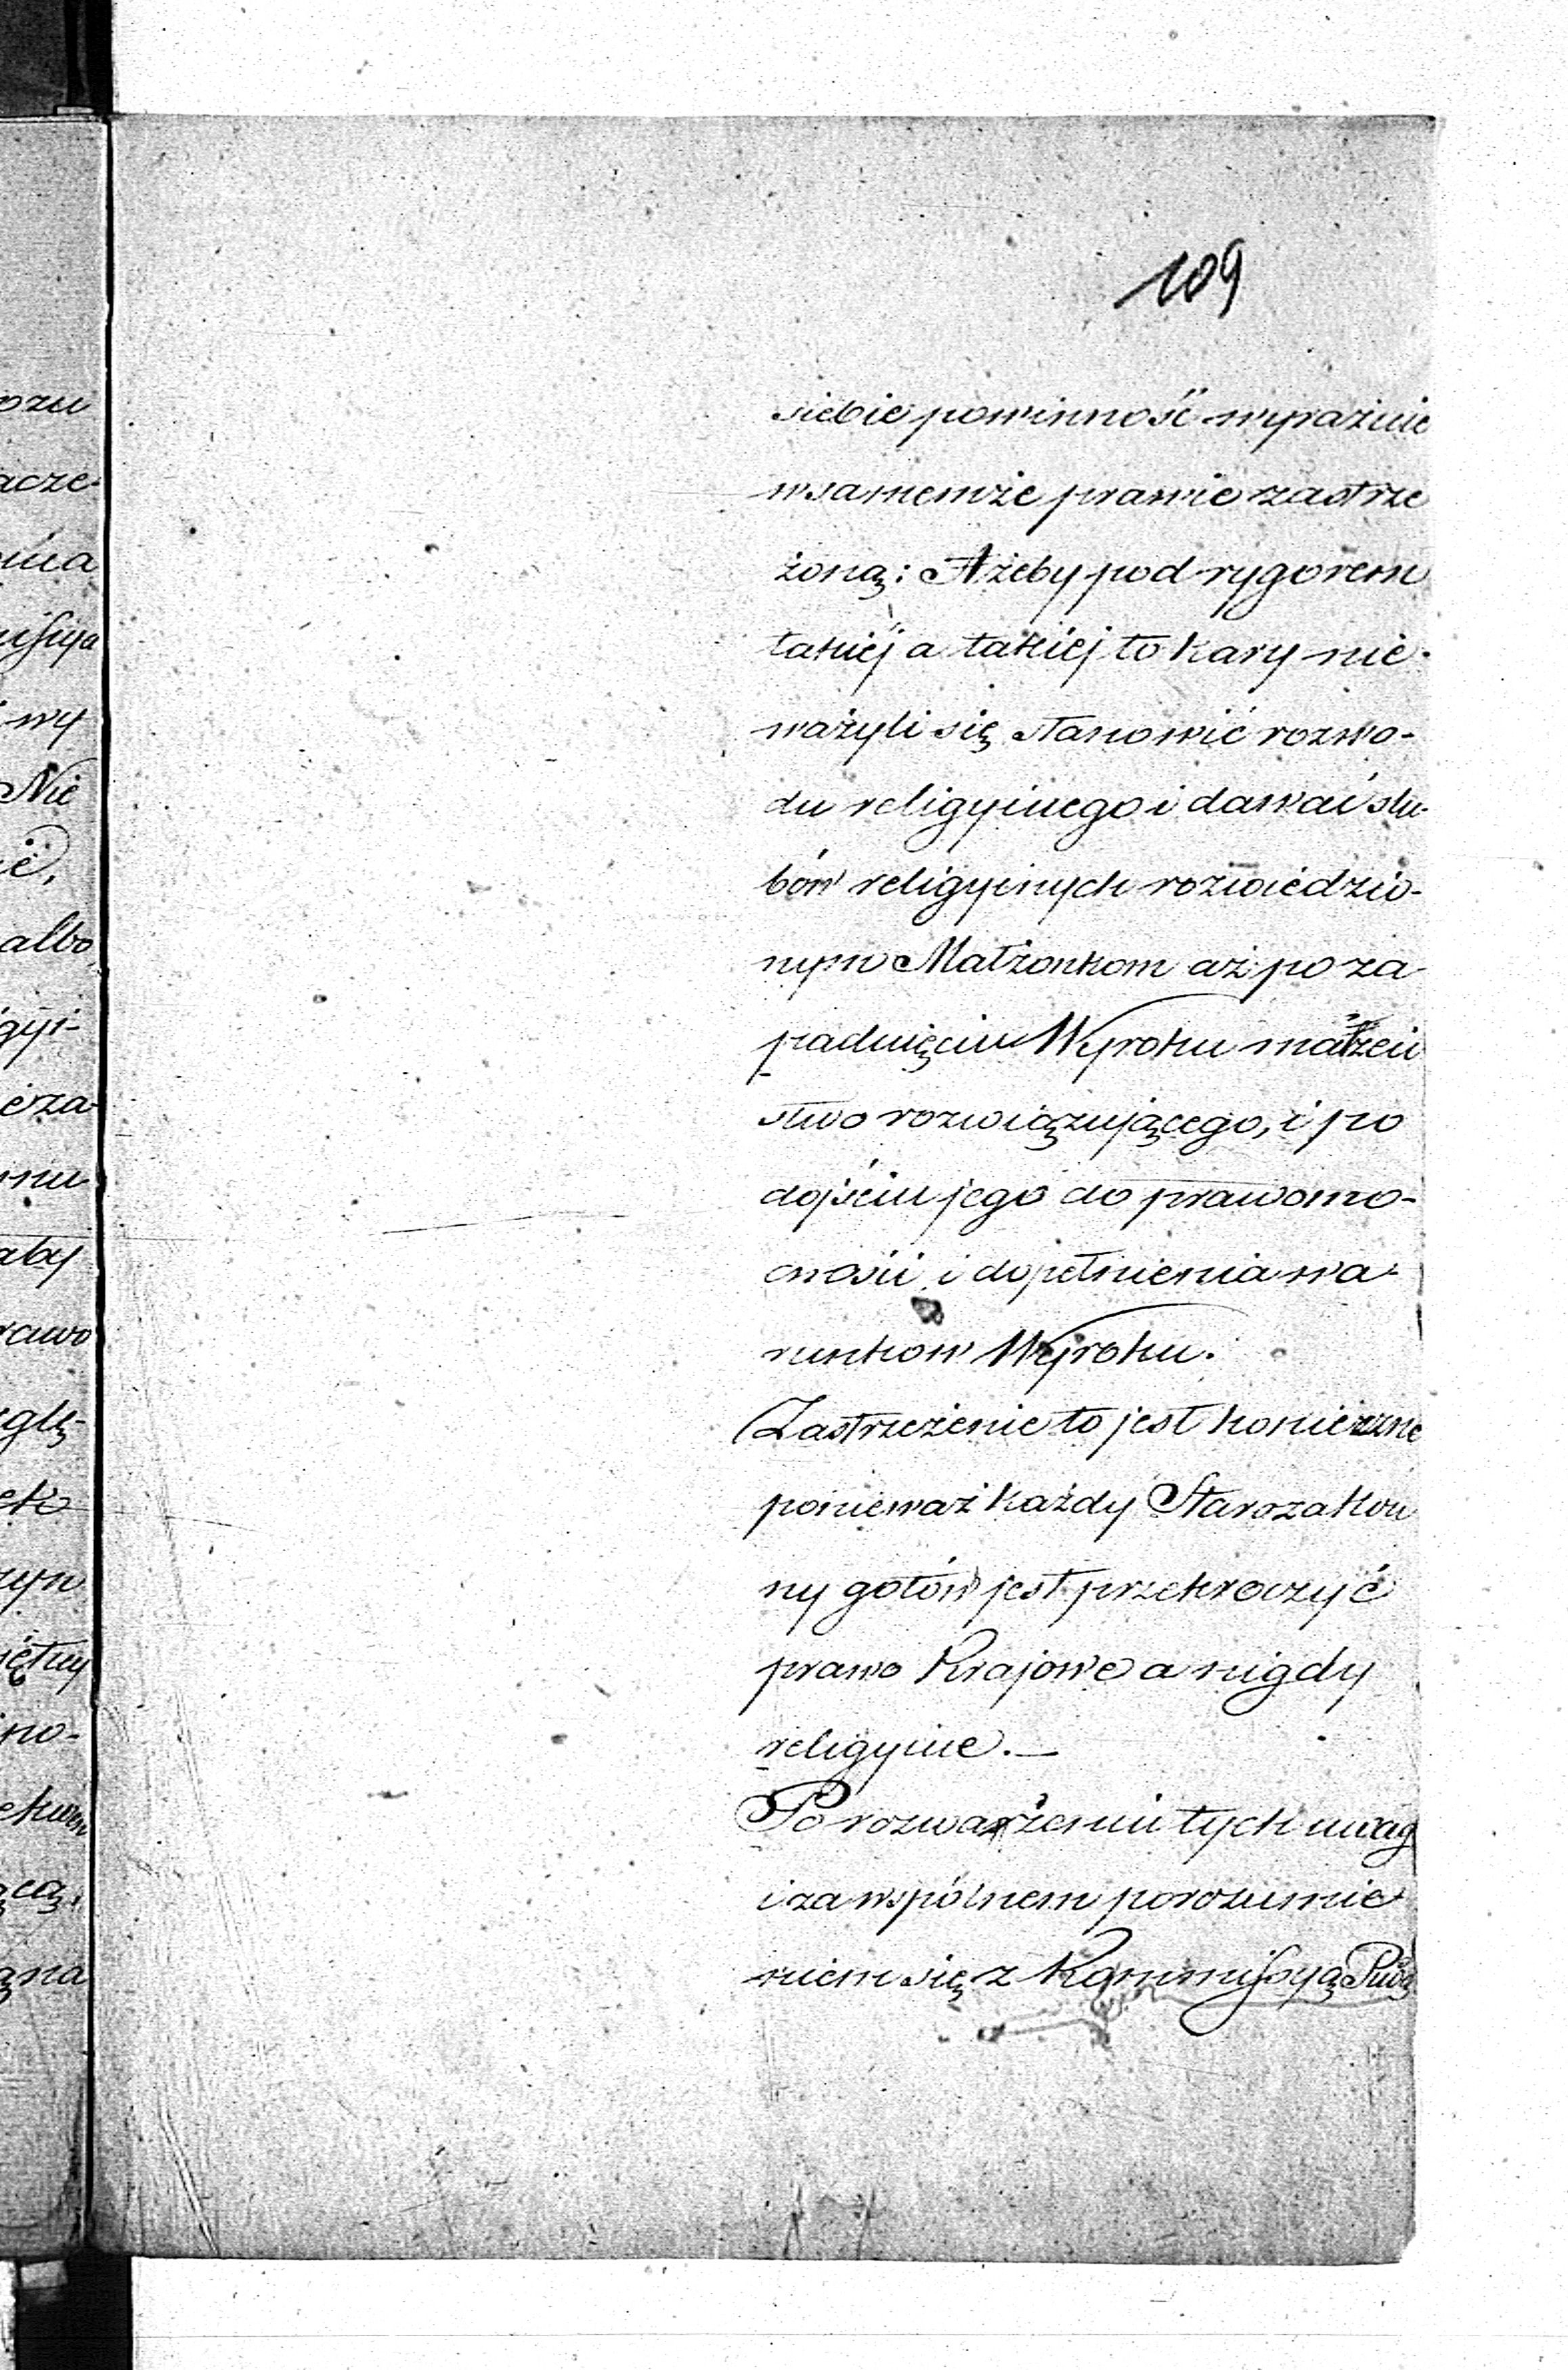 109
siebie powinność wyraźnie
w samemże prawie zastrze
żoną: Ażeby pod rygorem
takiéj a takiej to kary nie
ważyli się stanowić rozwo-
du religyinego i dawać slu-
bów religyinych rozwiedzio-
nym Małżonkom aż po za
padnięciu Wyroku małżeń
stwo rozwiązującego, i po
dojściu jego do prawomo-
cności i dopełnienia wa-
runkow Wyroku.
Zastrzeżenie to jest konieczne
ponieważ każdy Starozakon
ny gotów jest przekroczyć
prawo Krajowe a nigdy
religyine. —
Po rozważeniu tych uwag
i za wspólnem porozumie
niem się z Kommissyą
ozu
acze-
wy
Nie
albo
gyi-
eza-
aby